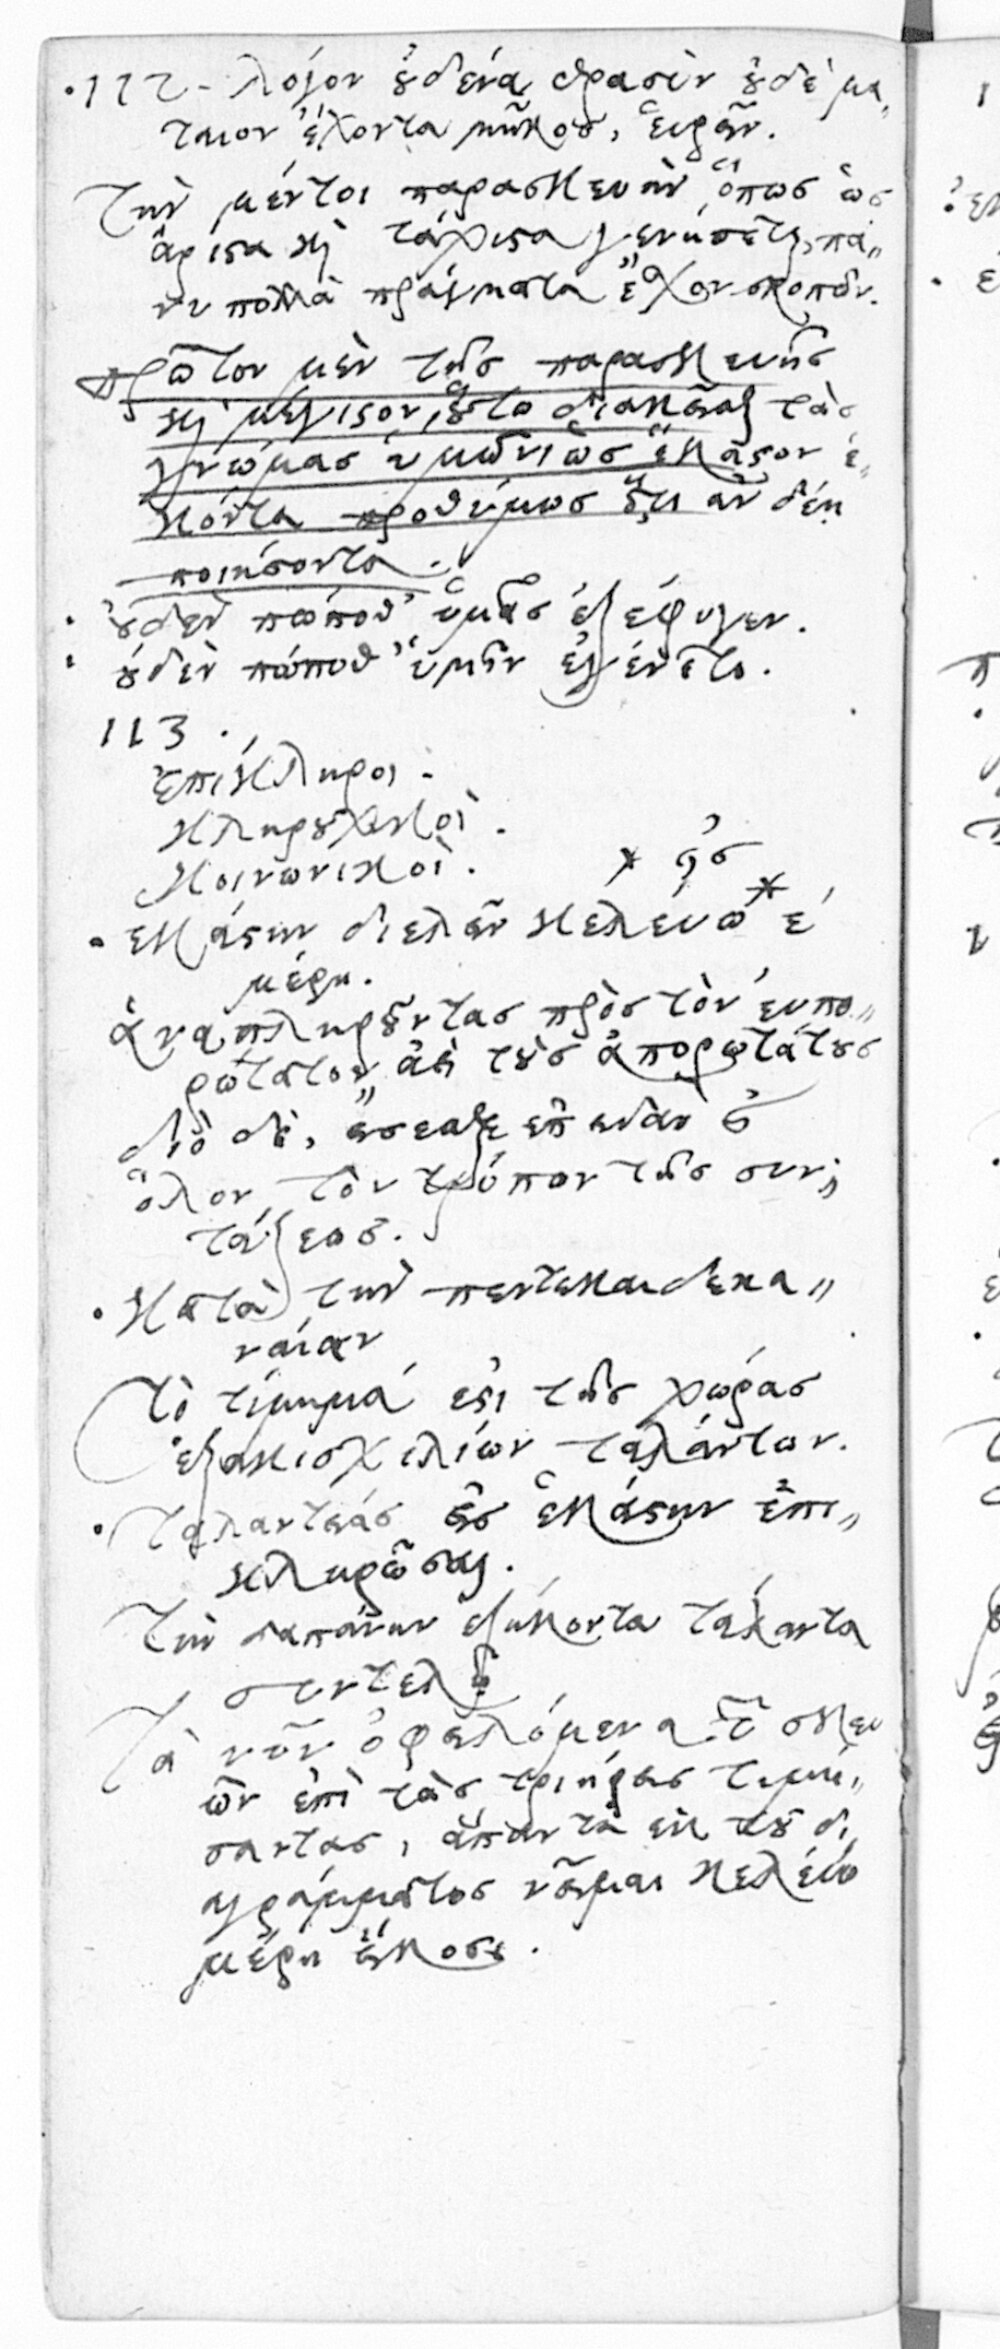 ·112- λόγον οὐδένα θρασὺν οὐδὲ μα„
ταιον ἔχοντα μῆκος, εὑρεῖν.
Τὴν μέντοι παρασκευὴν ὅπως ὡς
ἄριστα καὶ τάχιστα γενήσεται, πά„
νυ πολλὰ πράγματα ἔσχον σκοπῶν.
πρῶτον μὲν τῆς παρασκευῆς
καὶ μέγιστον, οὕτω διακεῖσθαι τὰς
γνώμας ὑμῶν ὡς ἕκαστον ἑ„
κόντα προθύμως ὅτι ἂν δέῃ
ποιήσοντα.
· οὐδὲν πώποθ' ὑμᾶς ἐξέφυγεν.
· οὐδὲν πώποθ' ὑμῖν ἐγένετο.
113.
ἐπικλήρων
κληρουχικῶν.
κοινωνικῶν.
* ης
· ἑκάστην διελεῖν κελεύω* ε΄
μέρη.
ἀναπληροῦντας πρὸς τὸν εὐπο„
ρώτατον, ἀεὶ τοὺς ἀπορωτάτους
ὅλον τὸν τρόπον τῆς συν„
τάξεως.
· κατὰ τὴν πεντεκαιδεκα„
ναίαν
Τὸ τίμημά ἐστι τῆς χώρας
ἑξακισχιλίων ταλάντων.
· ταλαντιαῖς εἰς ἑκάστην ἐπι„
κληρῶσαι.
τὴν δαπάνην ἑξήκοντα τάλαντα
συντελῇ
Τὰ νῦν ὀφειλόμενα τῶν σκευ
ῶν ἐπὶ τὰς τριήρεις τιμή„
σαντας, ἅπαντα ἐκ τοῦ δι
αγράμματος νεῖμαι κελεύω
μέρη εἴκοσι.